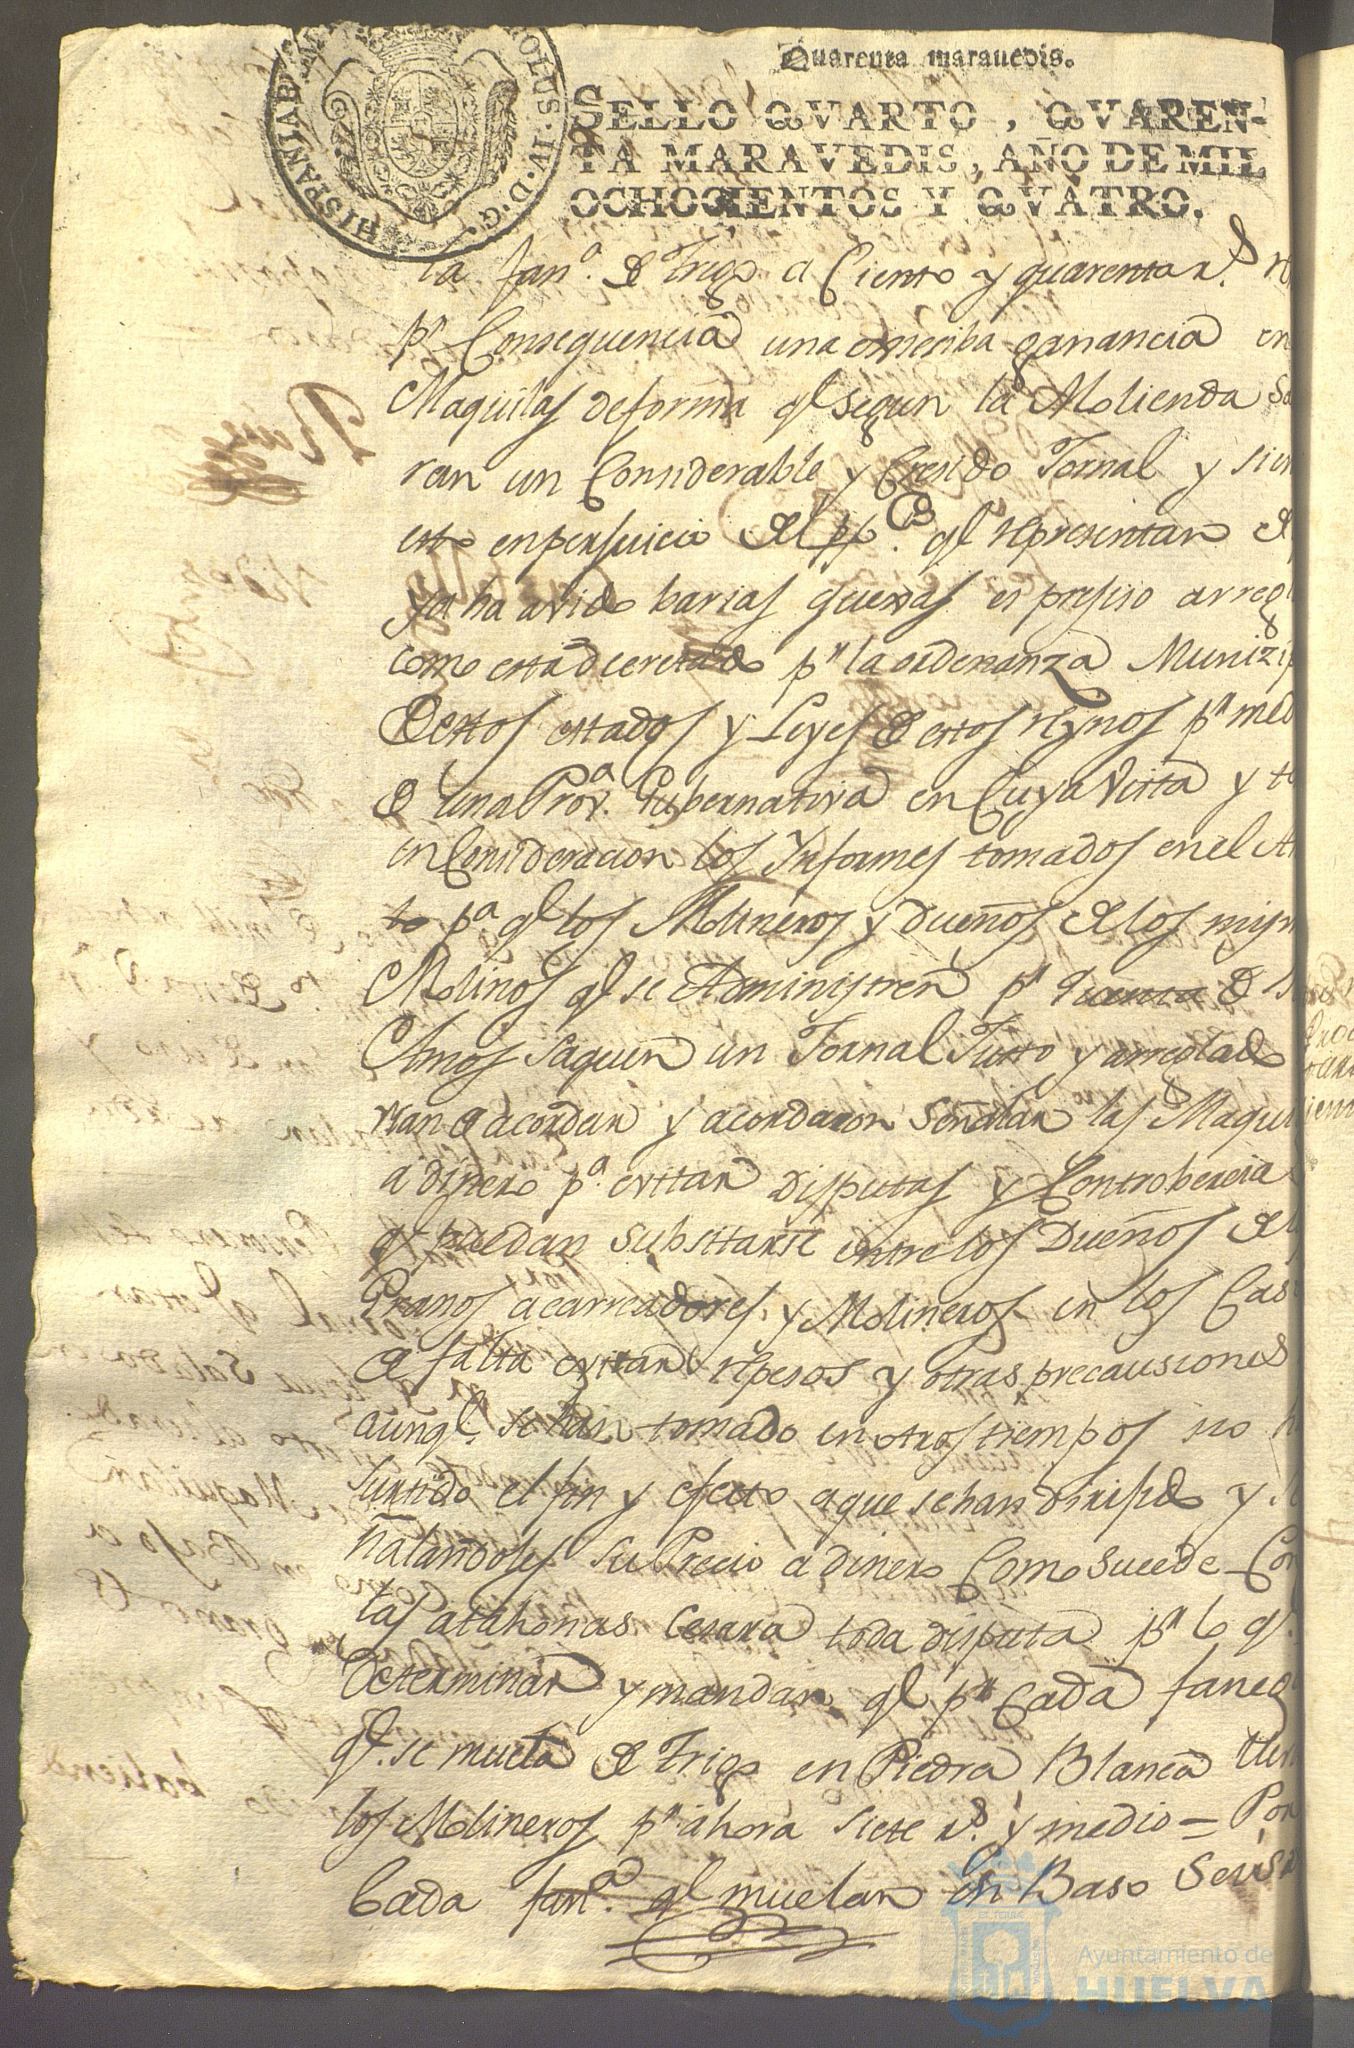 Quarenta marauedis.
HISPANIAR
OLUS·IV·D·G
SELLO QVARTO, QVAREN-
TA MARAVEDIS, AÑO DE MIL
OCHOCIENTOS Y QVATRO.
la fan.ª de Trigo a Ciento y quarenta r.s
p.r Consequencia una ganancia en
Maquilas de forma q.e segun la Molienda Sa
ran un Considerable y Cresido Jornal y sien
esto en perjuicio del q.e representan
ya ha avido barias quexas es presiso arreg
como está decretado p.r la ordenanza Munizip
destos estados y Leyes de estos reynos p.r med
de una Prov.ª Gubernativa en Cuya Vista y te
en Consideracion los Ynformes tomados en el A
to p.ª q.e los Molineros y dueños de los mism
Molinos q.e se Administren p.r quenta de s
Amos saquen un Jornal Justo y arreglado
vian de acordar y acordaron Señalar las Maqui
a dinero p.ª evitar disputas y Controbercia
q.e puedan Subsitarse entre los Dueños de l
Granos acarreadores y Molineros en los Cas
de falta evitar repesos y otras precausiones
aunq.e se han tomado en otros tiempos no h
surtido el fin y efecto a que se han dirijido y se
ñalandoles su Precio a dinero Como sucede Con
las atahonas Cesara toda disputa p.r lo q.e
determinar y mandar q.e p.r Cada faneg
q.e se muela de Trigo en Piedra Blanca lleven
los Molineros p.r ahora siete r.s y medio = Por
Cada fan.ª q.e muelan en Baso Seis
Ayuntamiento de
HUELVA